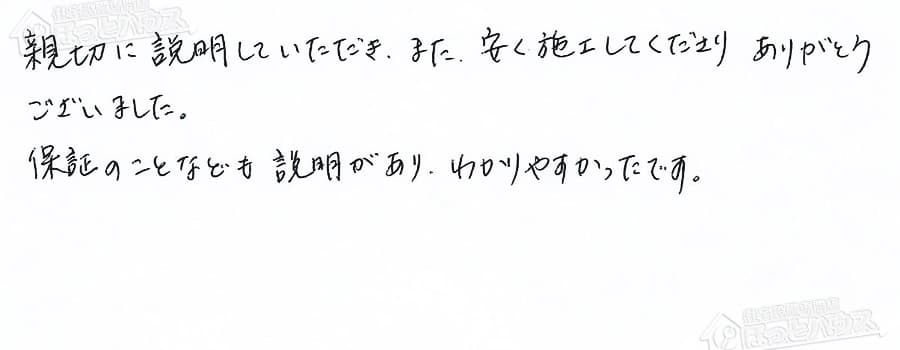 親切に説明していただき、また、安く施工してくださり ありがとう
ございました。
保証のことなども説明があり、わかりやすかったです。
ほっとハウス